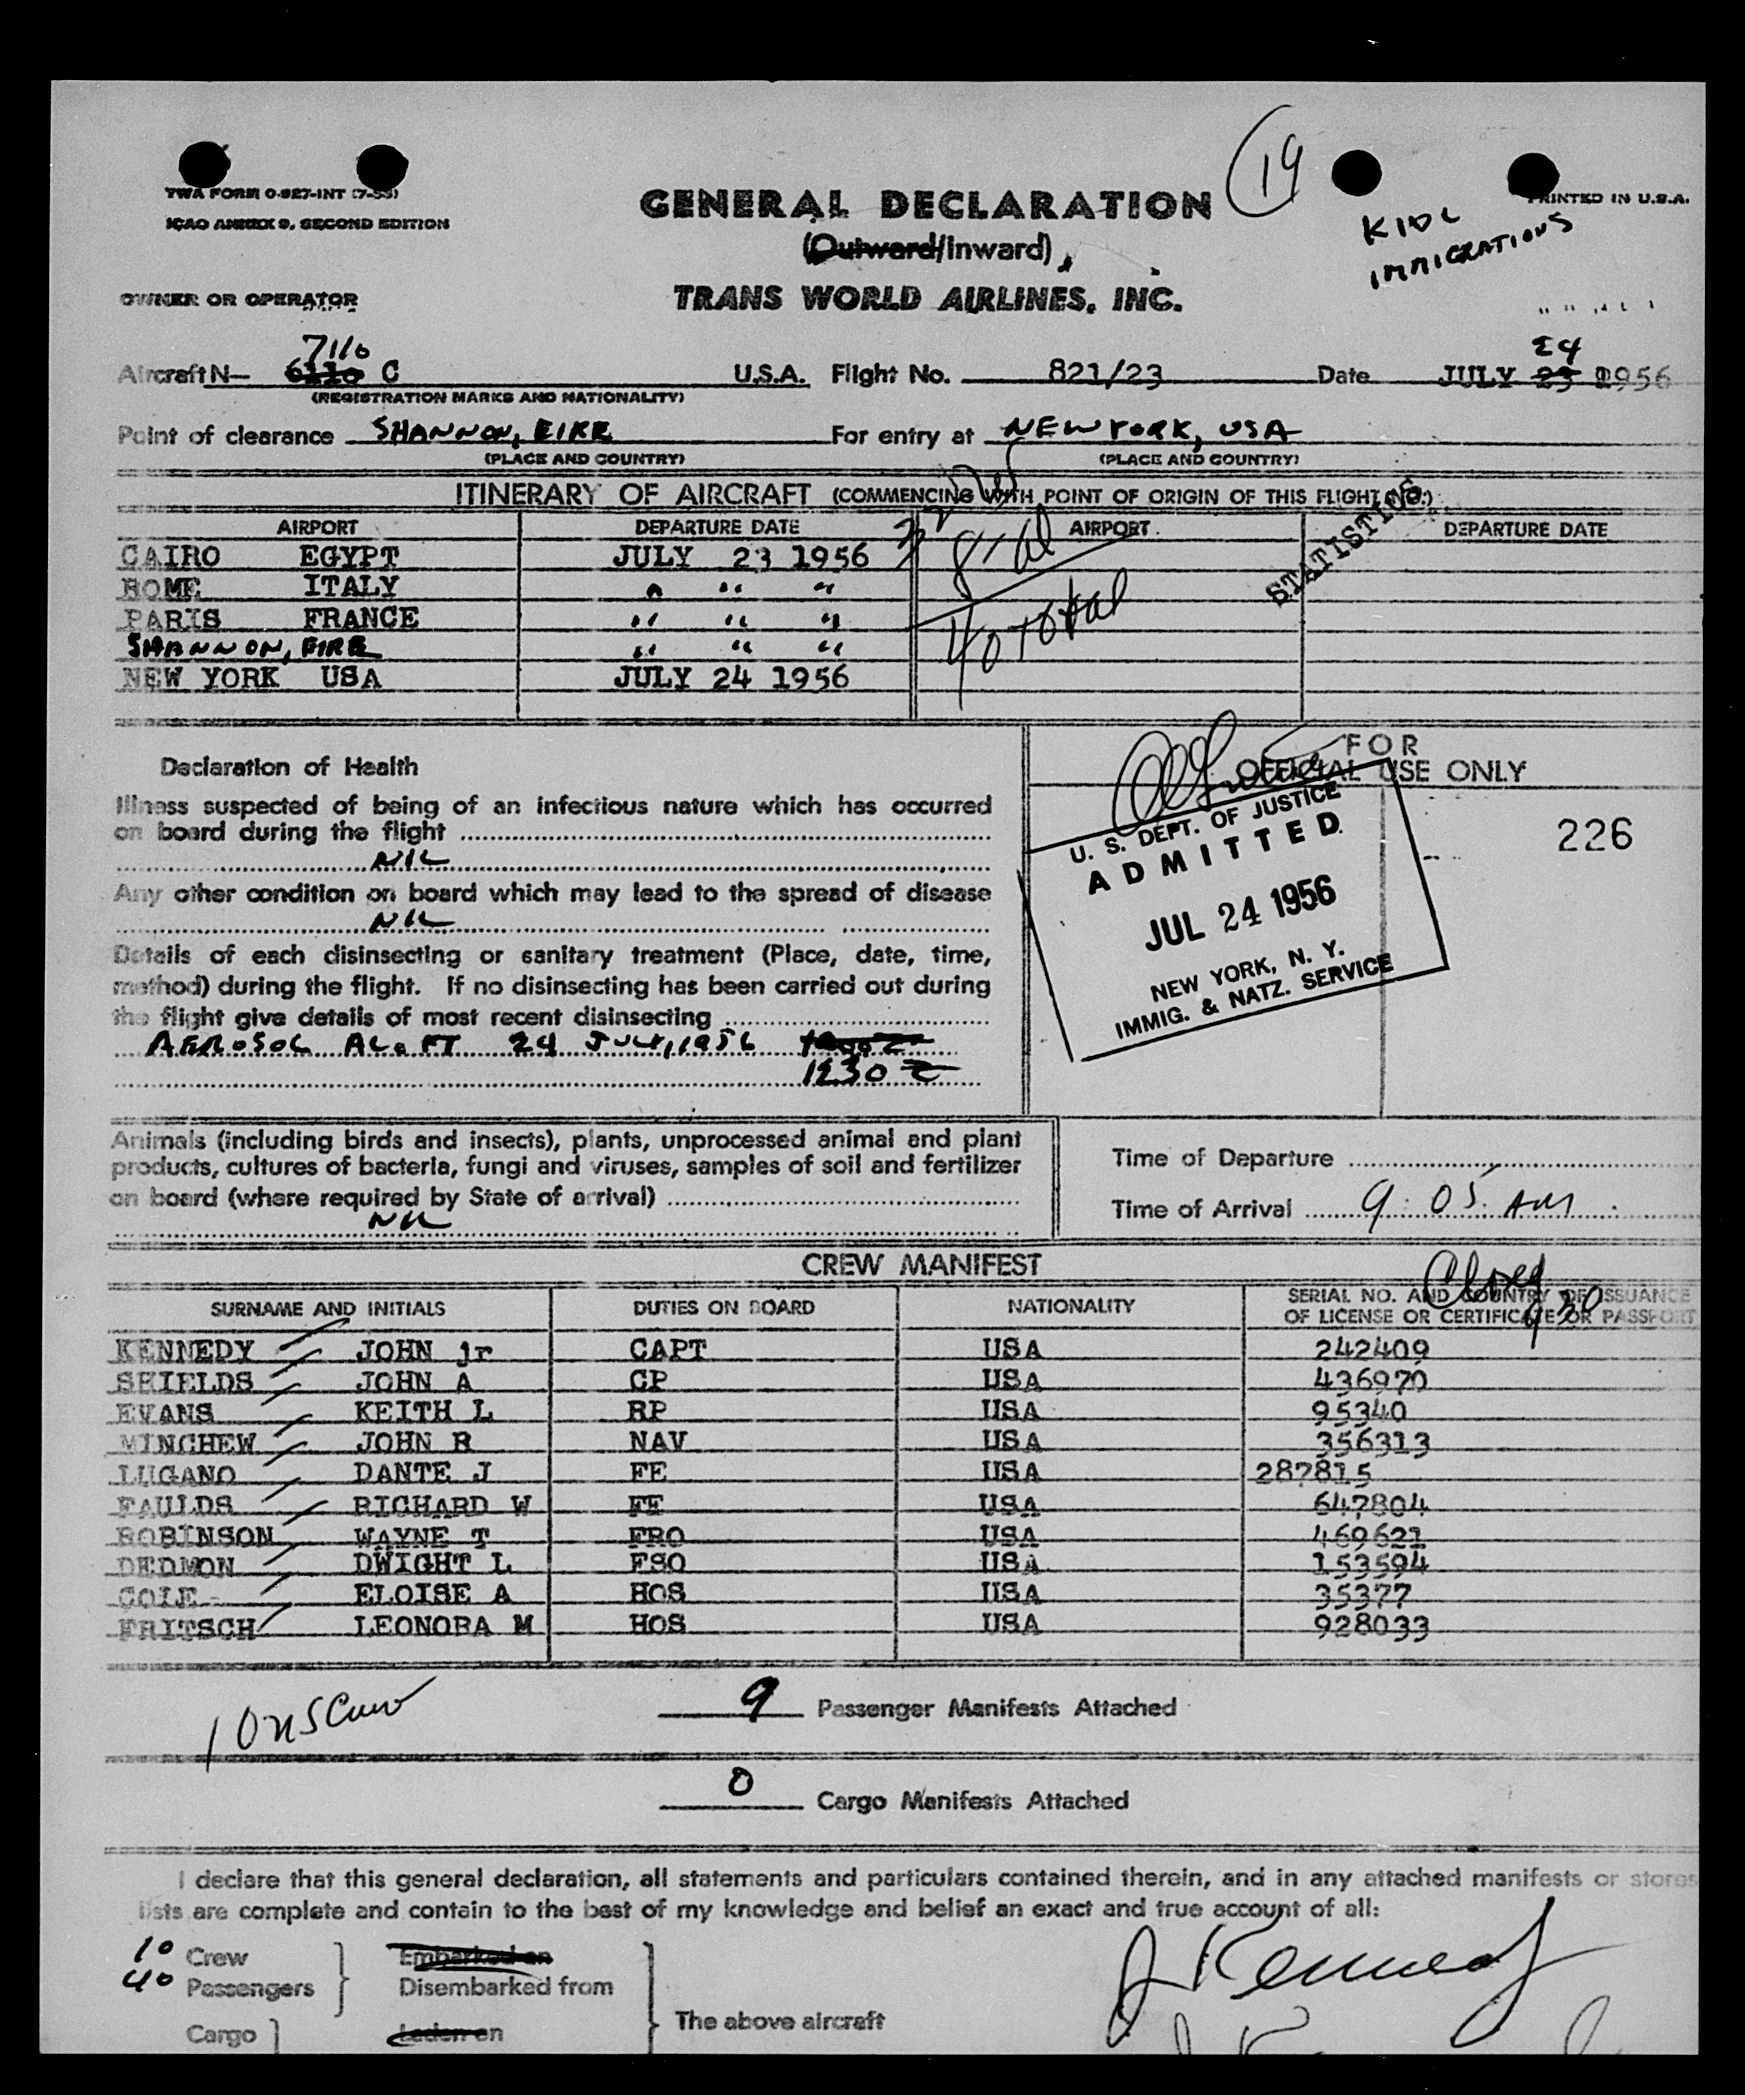 19
TWA FORM O-827-INT (7-53)
PRINTED IN U.S.A.
ICAO ANNEX 9, SECOND EDITION
GENERAL DECLARATION
(Outward/Inward)
KIDL
IMMIGRATIONS
OWNER OR OPERATOR
TRANS WORLD AIRLINES, INC.
7110
24
Aircraft N— 6110 C U.S.A. Flight No. 821/23 Date JULY 23 1956
(REGISTRATION MARKS AND NATIONALITY)
Point of clearance SHANNON, EIRE For entry at NEW YORK, USA
(PLACE AND COUNTRY) (PLACE AND COUNTRY)
ITINERARY OF AIRCRAFT (COMMENCING WITH POINT OF ORIGIN OF THIS FLIGHT NO.)
AIRPORT DEPARTURE DATE AIRPORT DEPARTURE DATE
CAIRO EGYPT JULY 23 1956
ROME ITALY " " "
PARIS FRANCE " " "
SHANNON, EIRE " " "
NEW YORK USA JULY 24 1956
32
8 al
40 Total
STATISTICS
Declaration of Health
FOR
OFFICIAL USE ONLY
Illness suspected of being of an infectious nature which has occurred
on board during the flight
NIL
Any other condition on board which may lead to the spread of disease
NIL
Details of each disinsecting or sanitary treatment (Place, date, time,
method) during the flight. If no disinsecting has been carried out during
the flight give details of most recent disinsecting
AEROSOL ALOFT 24 JULY, 1956
1230 Z
U. S. DEPT. OF JUSTICE
ADMITTED
JUL 24 1956
NEW YORK, N. Y.
IMMIG. & NATZ. SERVICE
226
Animals (including birds and insects), plants, unprocessed animal and plant
products, cultures of bacteria, fungi and viruses, samples of soil and fertilizer
on board (where required by State of arrival)
NIL
Time of Departure
Time of Arrival 9:05 AM
CREW MANIFEST
Closed
930
SURNAME AND INITIALS DUTIES ON BOARD NATIONALITY SERIAL NO. AND COUNTRY OF ISSUANCE
OF LICENSE OR CERTIFICATE OR PASSPORT
KENNEDY JOHN jr CAPT USA 242409
SHIELDS JOHN A CP USA 436970
EVANS KEITH L RP USA 95340
MINCHEW JOHN R NAV USA 356313
LUGANO DANTE J FE USA 287815
FAULDS RICHARD W FE USA 647804
ROBINSON WAYNE T FRO USA 469621
DEDMON DWIGHT L FSO USA 153594
COLE ELOISE A HOS USA 35377
FRITSCH LEONORA M HOS USA 928033
10 US Crew
9 Passenger Manifests Attached
0 Cargo Manifests Attached
I declare that this general declaration, all statements and particulars contained therein, and in any attached manifests or stores
lists are complete and contain to the best of my knowledge and belief an exact and true account of all:
10 Crew Embarked on
40 Passengers Disembarked from
Cargo Laden on
The above aircraft
J Kennedy